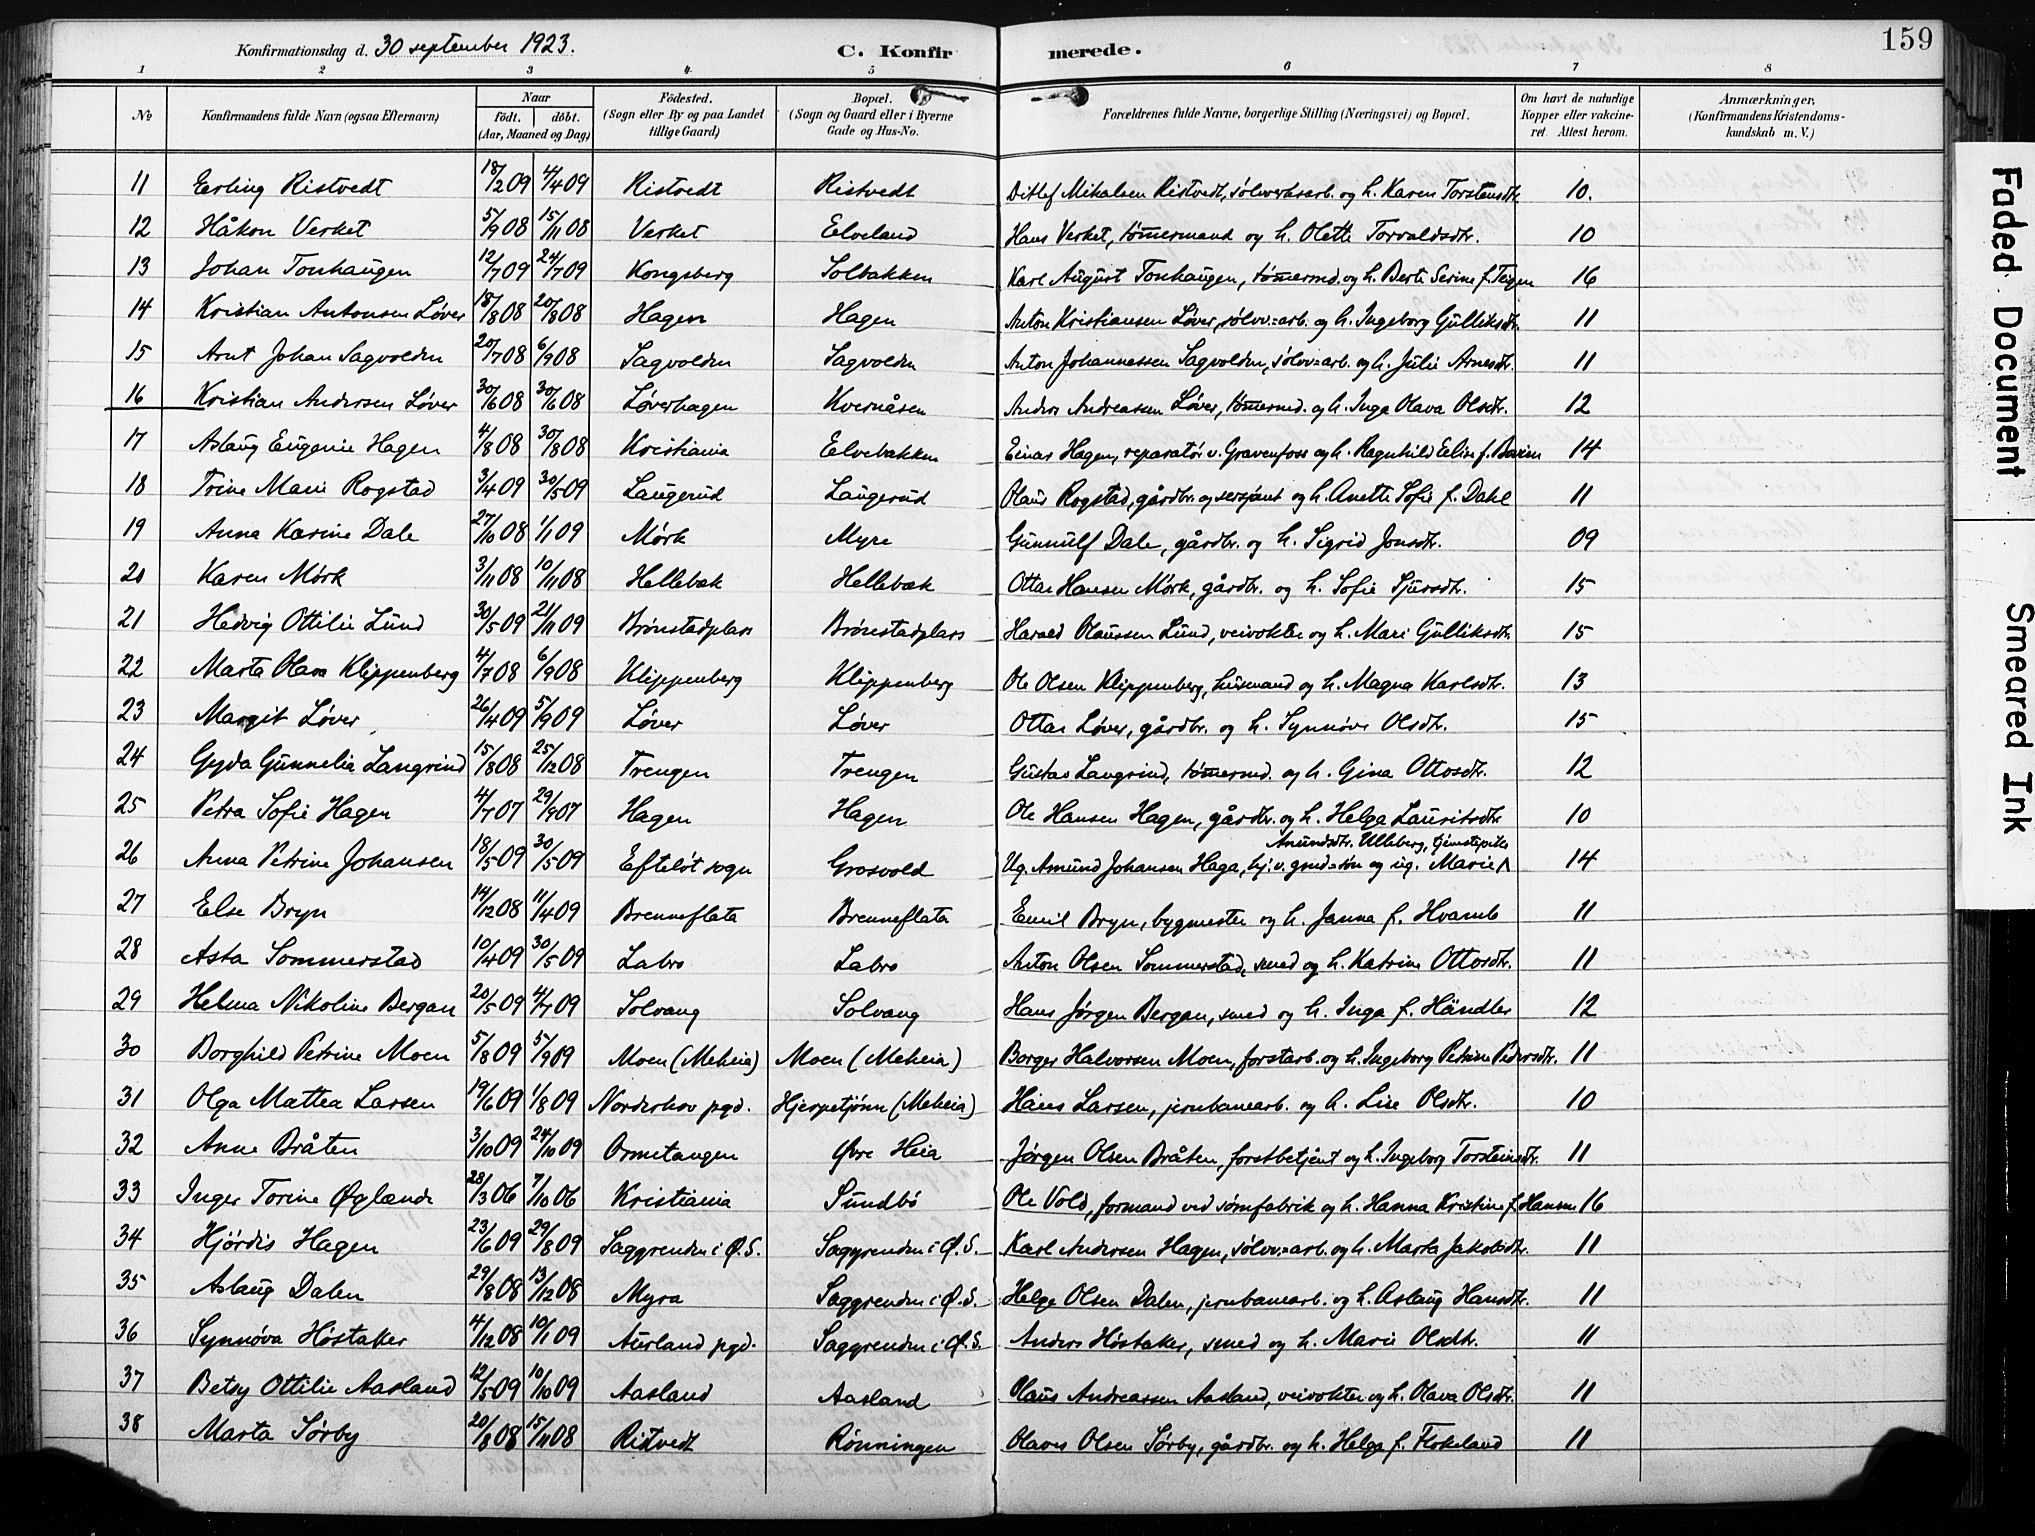 159
Konfirmationsdag d. 30 september 1923.
C. Konfirmerede.
1 2 3 4 5 6 7 8
No
Konfirmandens fulde Navn (ogsaa Efternavn)
Naar
født. døbt.
(Aar, Maaned og Dag)
Födested.
(Sogn eller By og paa Landet
tillige Gaard)
Bopæl.
(Sogn og Gaard eller i Byerne
Gade og Hus-No.
Forældrenes fulde Navne, borgerlige Stilling (Næringsvei) og Bopæl.
Om havt de naturlige
Kopper eller vakcine-
ret. Attest herom.
Anmærkninger.
(Konfirmandens Kristendoms-
kundskab m. V.)
11 Erling Ristvedt 18/2 09 4/4 09 Ristvedt Ristvedt Ditlef Mikalsen Ristvedt, sølvverksarb. og h. Karen Torstensdtr. 10.
12 Håkon Verket 5/9 08 15/11 08 Verket Elveland Hans Verket, tømermand og h. Olette Torvaldsdtr. 10
13 Johan Tonhaugen 12/7 09 24/7 09 Kongsberg Solbakken Karl August Tonhaugen, tømermd. og h. Berte Serine f. Teigen 16
14 Kristian Antonsen Løver 18/8 08 20/8 08 Hagen Hagen Anton Kristiansen Løver, sølvv.=arb. og h. Ingeborg Gulliksdtr. 11
15 Arnt Johan Sagvolden 20/7 08 6/9 08 Sagvolden Sagvolden Anton Johannessen Sagvolden, sølv=arb. og h. Julie Arnesdtr. 11
16 Kristian Andersen Løver 30/6 08 30/6 08 Løverhagen Kvernåsen Anders Andreassen Løver, tømermd. og h. Inga Olava Olsdtr. 12
17 Aslaug Eugenie Hagen 4/8 08 30/8 08 Kristiania Elvebakken Einar Hagen, reparatør v. Gravenfoss og h. Ragnhild Elin f. 14
18 Trine Marie Rogstad 3/4 09 30/5 09 Laugerud Laugerud Olaus Rogstad, gårdbr. og sersjant og h. Anette Sofie f. Dahl 11
19 Anna Karine Dale 27/10 08 1/1 09 Mørk Myre Gunnulf Dale, gårdbr. og h. Sigrid Jonsdtr. 09
20 Karen Mørk 3/11 08 10/11 08 Hellebæk Hellebæk Ottar Hansen Mørk, gårdbr. og h. Sofie Sjursdtr. 15
21 Hedvig Ottilie Lund 30/5 09 21/11 09 Brønstadplass Brønstadplass Harald Olaussen Lund, veivokter og h. Mari Gulliksdtr. 15
22 Marta Olava Klippenberg 4/7 08 6/9 08 Klippenberg Klippenberg Ole Olsen Klippenberg, husmand og h. Magna Karlsdtr. 13
23 Margit Løver 26/4 09 5/9 09 Løver Løver Ottar Løver, gårdbr. og h. Synnøve Olsdtr. 15
24 Gyda Gunnelia Langrind 15/8 08 25/12 08 Trengen Trengen Gustav Langrind, tømermd. og h. Gina Ottosdtr. 12
25 Petra Sofie Hagen 4/7 07 29/9 07 Hagen Hagen Ole Hansen Hagen, gårdbr. og h. Helga Lauritsdtr. 10
Amundsdtr. Ulleberg, tjenestepike
26 Anna Petrine Johansen 18/5 09 30/5 09 Efteløt sogn Grosvold Ug. Amund Johansen Haga, hj. v. grnd=søn og ug. Marie ∧ 14
27 Else Bryn 14/12 08 11/4 09 Brenneflata Brenneflata Emil Bryn, bygmester og h. Janna f. Hvamb 11
28 Asta Sommerstad 10/4 09 30/5 09 Labro Labro Anton Olsen Sommerstad, smed og h. Katrine Ottosdtr. 11
29 Helma Nikoline Bergan 20/5 09 4/7 09 Solvang Solvang Hans Jørgen Bergan, smed og h. Inga f. Händler 12
30 Borghild Petrine Moen 5/8 09 5/9 09 Moen (Meheia) Moen (Meheia) Borger Halvorsen Moen, forstarb. og h. Ingeborg Petrine Pedersdtr. 11
31 Olga Mattea Larsen 19/6 09 1/8 09 Norderhov pgd. Hjerpetjønn (Meheia) Hans Larsen, jernbanearb. og h. Lise Olsdtr. 10
32 Anne Bråten 3/10 09 24/10 09 Ormetangen Øvre Heia Jørgen Olsen Bråten, forstbetjent og h. Ingeborg Torsteinsdtr. 11
33 Inger Torine Øglænde 28/3 06 7/10 06 Kristiania Sundbø Ole Vold, formand ved sømfabrik og h. Hanna Kristine f. Hansen 16
34 Hjördis Hagen 23/6 09 29/8 09 Saggrenden i Ø.S. Saggrenden i Ø.S. Karl Andersen Hagen, sølvv.=arb. og h. Marta Jakobsdtr. 11
35 Aslaug Dalen 29/8 08 13/12 08 Myra Saggrenden i Ø.S. Helge Olsen Dalen, jernbanearb. og h. Aslaug Hansdtr. 11
36 Synnøva Høstaker 4/12 08 10/1 09 Aurland pgd. Saggrenden i Ø.S. Anders Høstaker, smed og h. Marie Olsdtr. 11
37 Betsy Ottilie Aasland 12/5 09 10/10 09 Aasland Aasland Olaus Andreassen Aasland, veivokter og h. Olava Olsdtr. 11
38 Marta Sørby 20/8 08 15/11 08 Ristvedt Rønningen Olaves Olsen Sørby, gårdbr. og h. Helga f. Flokeland 11
Faded Document
Smeared Ink